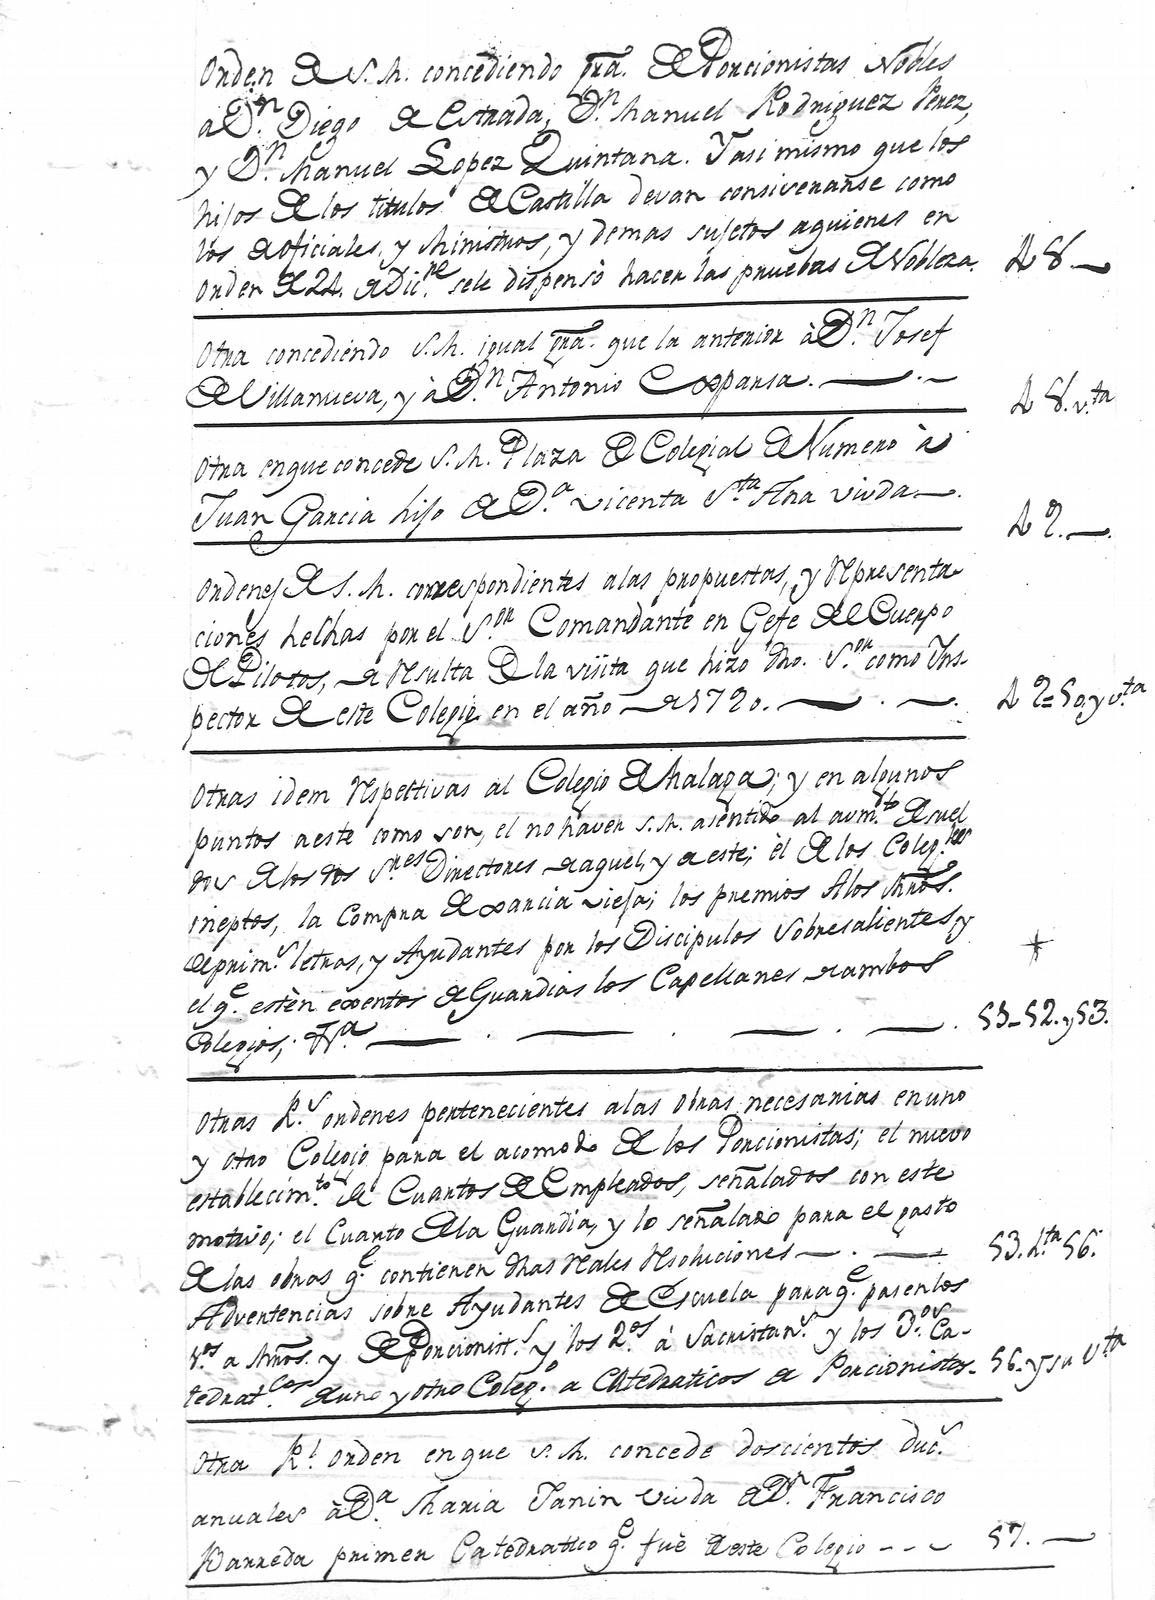 Orden de S. M. concediendo gra. de Porcionistas Nobles
a Dn. Diego de Estrada, Dn. Manuel Rodriguez Perez,
y Dn. Manuel Lopez Quintana. Y asi mismo que los
hijos de los titulos de Castilla devan consiverarse como
los de oficiales, y Ministros, y demas sujetos aquienes en
orden de 24. de Dicre. sele dispensò hacer las pruebas de Nobleza. 48.
Otra concediendo S. M. igual gra. que la anterior à Dn. Josef
de Villanueva, y à Dn. Antonio Exparsa. 48. vta
Otra enque concede S. M. Plaza de Colegial de Numero à
Juan Garcia hijo de Da. Vicenta Sta. Ana viuda. 49.
Ordenes de S. M. correspondientes alas propuestas, y representa
ciones hechas por el Sor. Comandante en Gefe del Cuerpo
de Pilotos, de resulta de la visita que hizo dho. Sor. como Ins-
pector de este Colegio en el año de 1790. 49=50, y vta
Otras idem respettivas al Colegio de Malaga; y en algunos
puntos aeste como son, el no haver S. M. asentido al aumto. de suel
dos delos dos Sres. Directores de aquel, y de este; èl de los Coleg.les
ineptos, la compra de xarcia vieja; los premios alos Mños.
de prims. letras, y Ayudantes por los Discipulos Sobresalientes, y
el qe. estèn exentos de Guardias los Capellanes de ambos
Colegios; &a. 51-52. y 53.
Otras Rs. ordenes pertenecientes alas obras necesarias en uno
y otro Colegio para el acomodo de los Porcionistas; el nuevo
establecimto. de Cuartos de Empleados, señalados con este
motivo; el Cuarto de la Guardia, y lo señalado para el gasto
de las obras qe. contienen dhas reales resoluciones 53. vta 56.
Advertencias sobre Ayudantes de Escuela para qe. pasen los
1.os a Mños. y de Porcionits. y los 2.os à Sacristans. y los D.os Ca-
tedrat.cos de uno y otro Colego. a Catedraticos de Porcionistas. 56. y su vta
Otra Rl. orden enque S. M. concede doscientos ducs.
anuales à Da. Maria Janin viuda de Dn. Francisco
Barreda primer Catedratico qe. fuè de este Colegio 57.